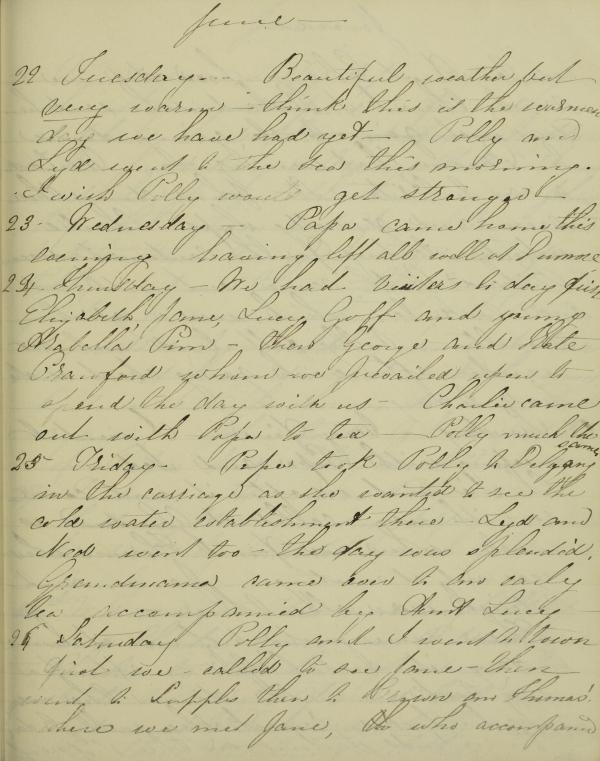 June —
22 Tuesday - Beautiful weather but
very warm - think this is the warmest
day we have had yet - Polly and
Lyd went to the sea this morning.
I wish Polly would get stronger -
23 Wednesday - Papa came home this
evening having left all well at
24 Thursday - We had visiters to day first
Elizabeth Jane, Lucy Goff and young
Arabella Pim - then George and Kate
Crawford whom we prevailed upon to
spend the day with us - Charlie came
out with Papa to tea - Polly much the same
25 Friday - Papa took Polly to Delgany
in the carriage as she wanted to see the
cold water establishment there - Lyd and
Ned went too - the day was splendid.
Grandmama came over to an early
tea accompanied by Aunt Lucy -
26 Saturday Polly and I went to town
first we called to see Jane - then
went to Supples then to Brown and Thomas'
where we met Jane, who accompanied